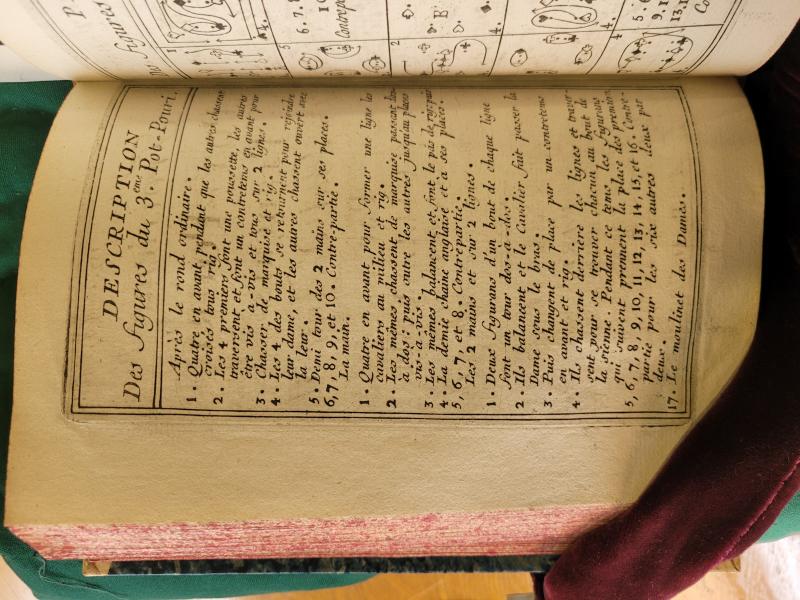 DESCRIPTION
Des figures du 3.eme Pot-Pouri.
Après le rond ordinaire.
1. Quatre en avant, pendant que les autres chassent
croisés tous rig.
2. Les 4 premiers font une poussette, les autres
traversent et font un contretems en avant pour
être vis à-vis et tous sur 2 lignes.
3. Chasser de marquise et rig.
4. Les 4 des bouts se retournent pour rejoindre
leur dame, et les autres chassent ouvert avec
la leur.
5. Demi tour des 2 mains sur ses places.
6, 7, 8, 9, et 10. Contre-partie.
La main.
1. Quatre en avant pour former une ligne les
cavaliers au milieu et rig.
2. Les mêmes chassent de marquise, passent dos-
à dos, puis outre les autres jusqu'au places
vis-à-vis.
3. Les mêmes balancent et font le pas de rig.
4. La demie chaine anglaise et à ses places.
5, 6, 7 et 8. Contrepartie.
Les 2 mains et sur 2 lignes.
1. Deux figurans d'un bout de chaque ligne
font un tour dos-à-dos.
2. Ils balancent et le Cavalier fait passer la
Dame sous le bras.
3. Puis changent de place par un contretems
en avant et rig.
4. Ils chassent derrière les lignes et traver-
sent pour se trouver chacun au bout de
la sienne. Pendant ce tems, les figurans
qui suivent prennent la place des premiers
5, 6, 7, 8, 9, 10, 11, 12, 13, 14, 15, et 16. Contre-
partie pour les six autres deux par
deux.
17. Le moulinet des Dames.